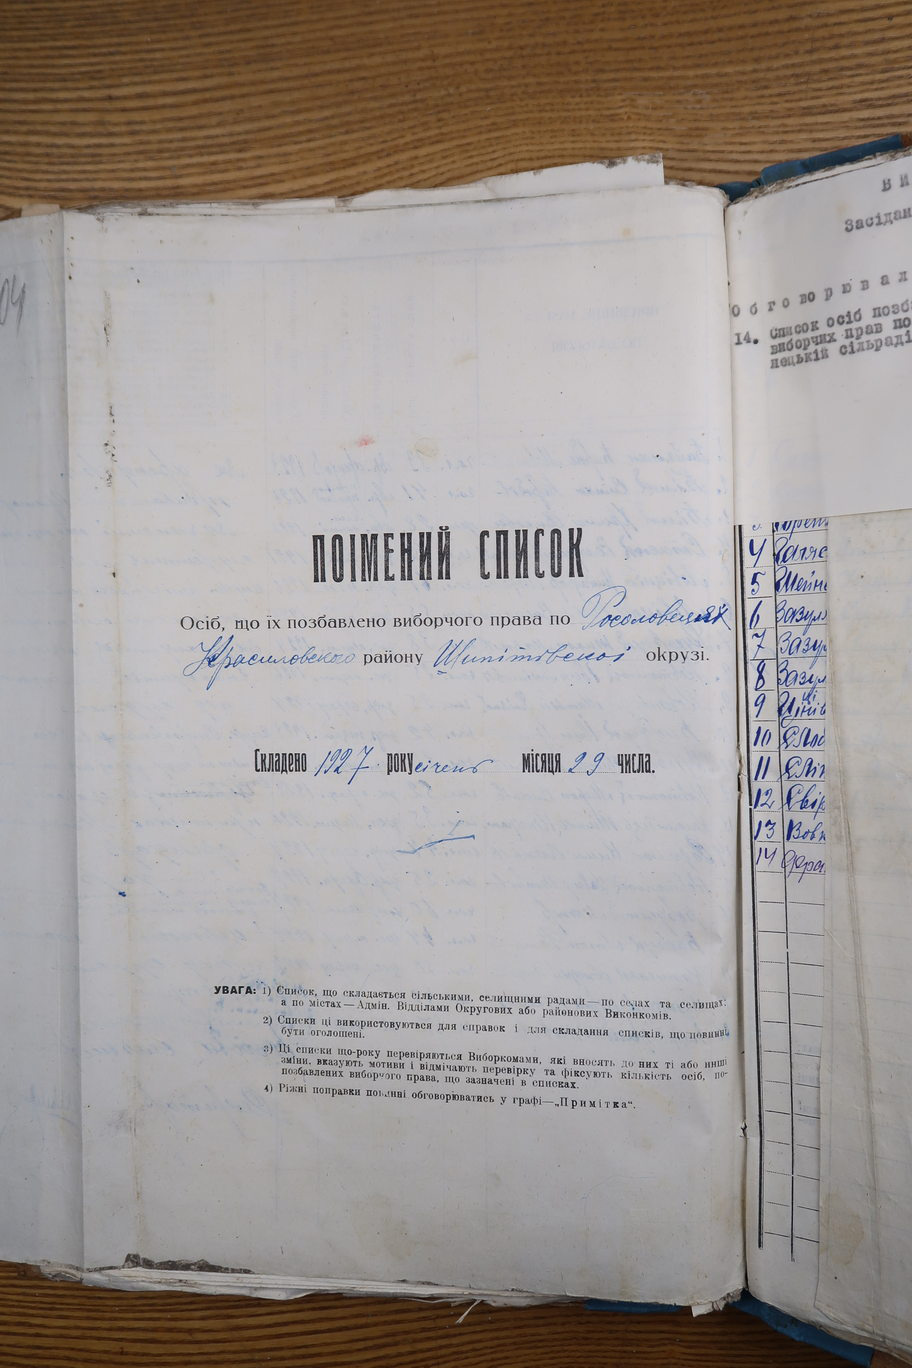 04
ПОІМЕНИЙ СПИСОК
Осіб, що їх позбавлено виборчого права по
Красиловского району Шипітовскої окрузі.
Складено 1927 року січень місяця 29 числа.
УВАГА: 1) Список, що складається сільськими, селищними радами—по селах та селищах:
а по містах—Адмін. Відділами Округових або районових Виконкомів.
2) Списки ці використовуються для справок і для складання списків, що повинні
бути оголошені.
3) Ці списки що-року перевіряються Виборкомами, які вносять до них ті або инші
зміни, вказують мотиви і відмічають перевірку та фіксують кількість осіб, по-
позбавлених виборчого права, що зазначені в списках.
4) Ріжні поправки повинні обговорюватись у графі—„Примітка“.
ВИ
Засідан
Обговорювал
14. Список осіб позб
виборчих прав по
пецькій сільраді
4
5
6 Зазул
7 Зазу
8 Зазул
9
10
11
12 Свір
13 Вовк
14